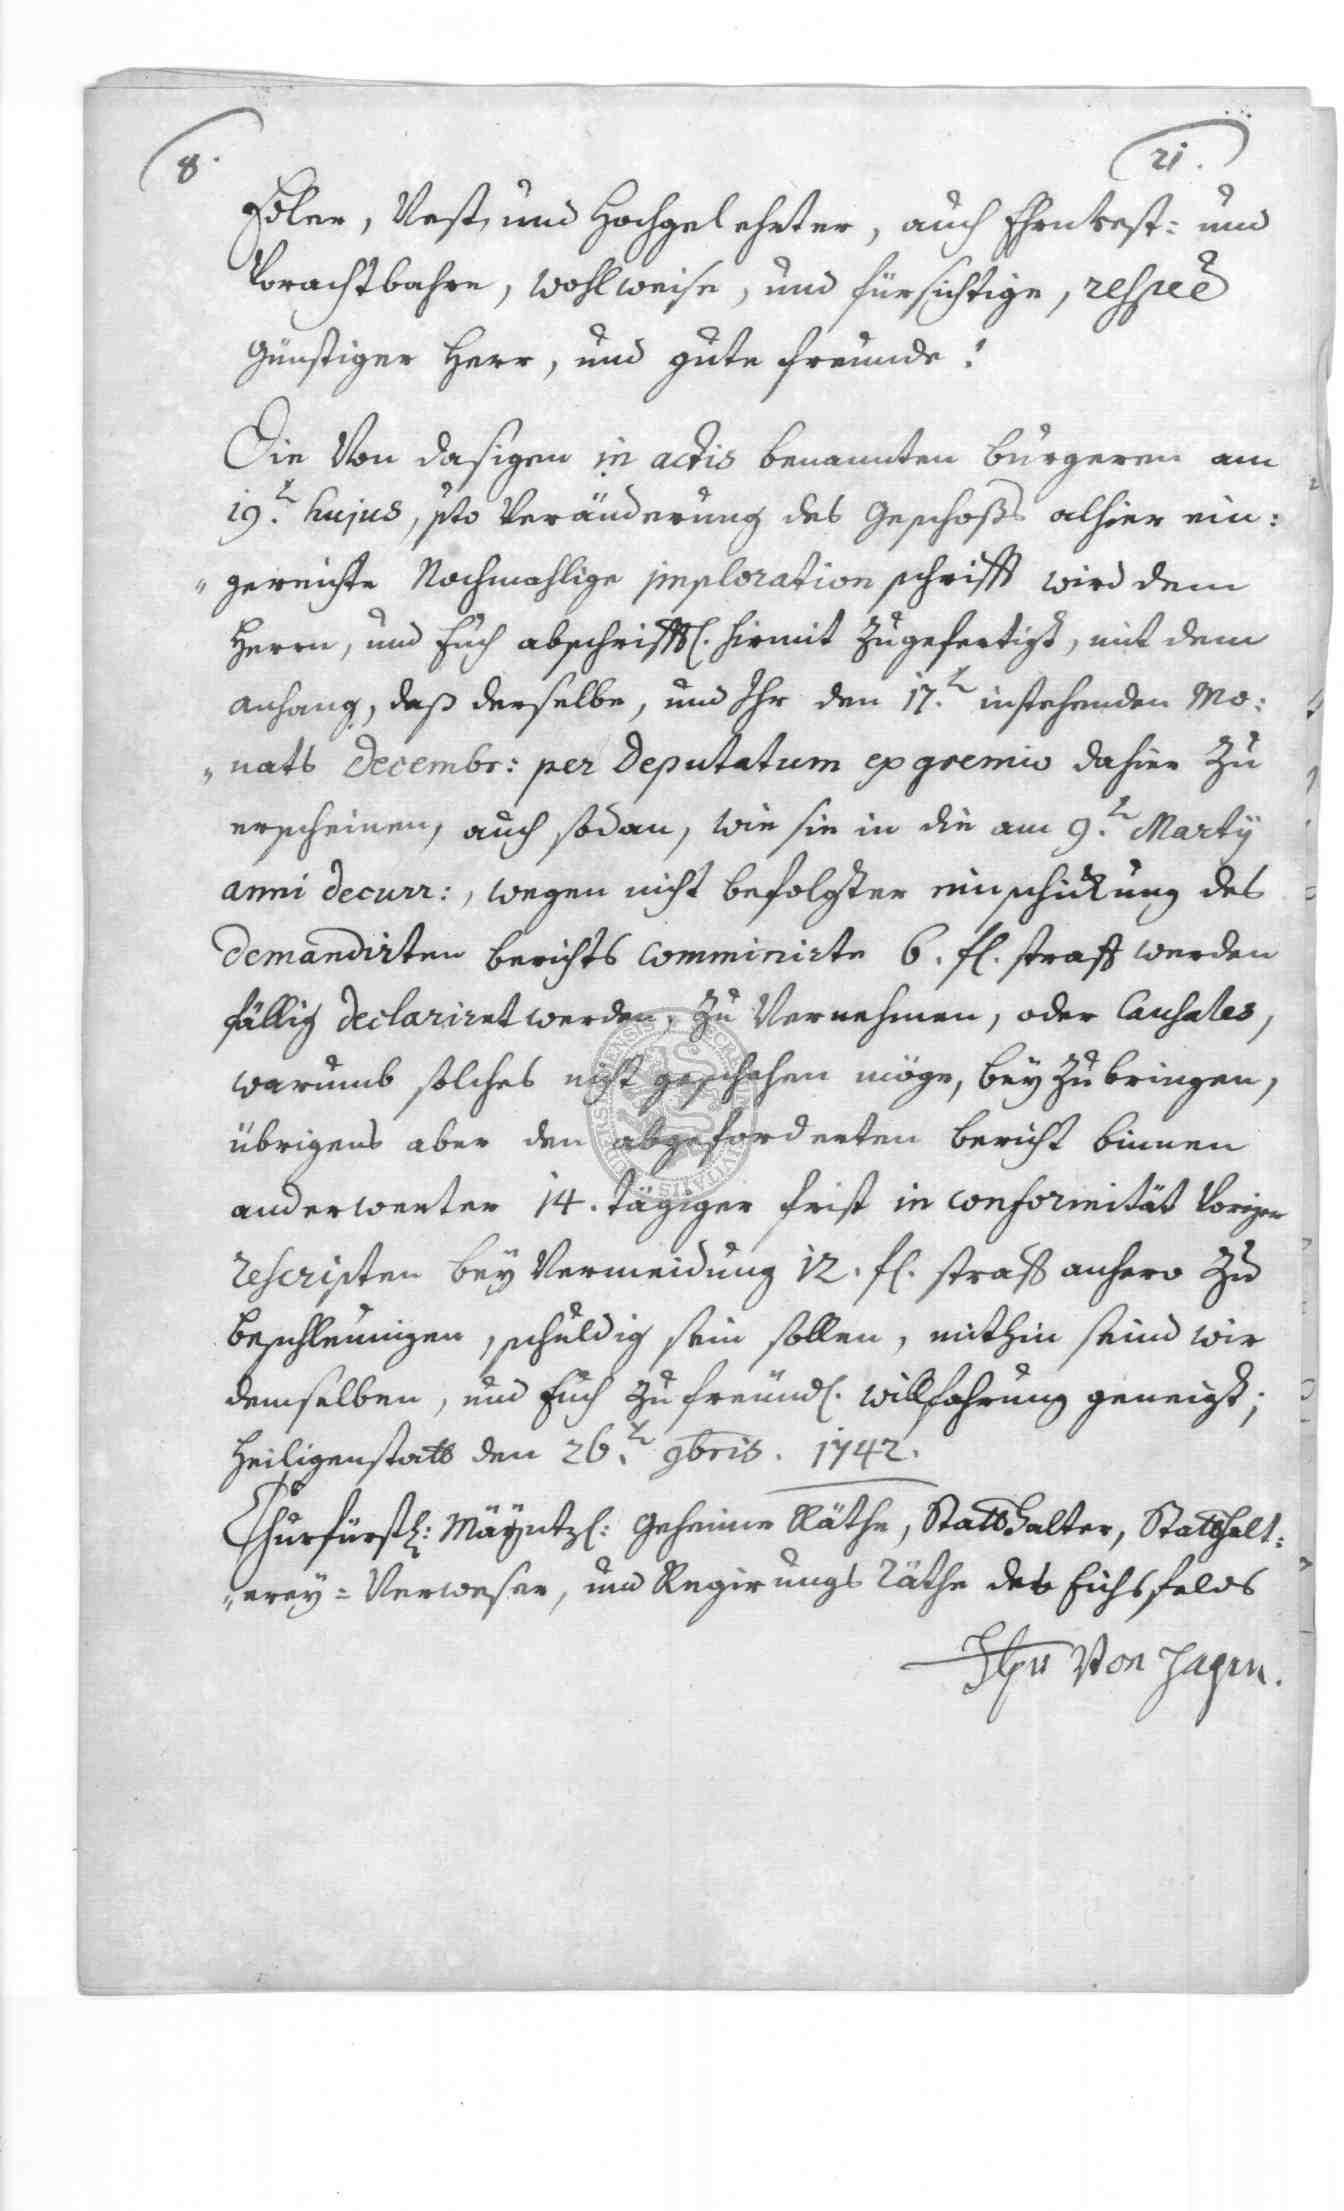 8.
21.
Edler, Vest, und Hochgelehrter, auch Ehrnvest= und
Vorachtbahre, wohlweise, und fürsichtige, respec
Günstiger Herr, und gute freunde!
Die Von dasigen in actis benannten bürgeren am
19.t hujus, pto Veränderung des Geschoßs alhier ein:
„gereichte Nochmahlige imploration schrifft wird dem
Herrn, und Euch abschrifftl. hirmit zugefertigt, mit dem
anhang, daß derselbe, und Ihr den 17.t instehenden Mo:
„nats Decembr: per Deputatum ex gremio dahier zu
erscheinen, auch sodan, wie sie in die am 9.t Martÿ
anni decurr:, wegen nicht befolgter einschickung des
demandirten berichts comminirte 6. fl. straff werden
fällig declariret werden, zu Vernehmen, oder Causales,
warumb solches nicht geschehen möge, beyzubringen,
übrigens aber den abgeforderten bericht binnen
anderwerter 14. tägiger frist in conformität Voriger
rescripten beÿ Vermeidung 12. fl. straff anhero zu
beschleunigen, schuldig sein sollen, mithin seind wir
demselben, und Euch zu freündl. willfahrung geneigt;
Heiligenstatt den 26.t 9bris. 1742.
Churfürstl: Mäyntzl: Geheime Räthe, Statthalter, Statthalt:
„erey= Verweser, und Regirungs räthe des Eichsfelds
Von Hagen.